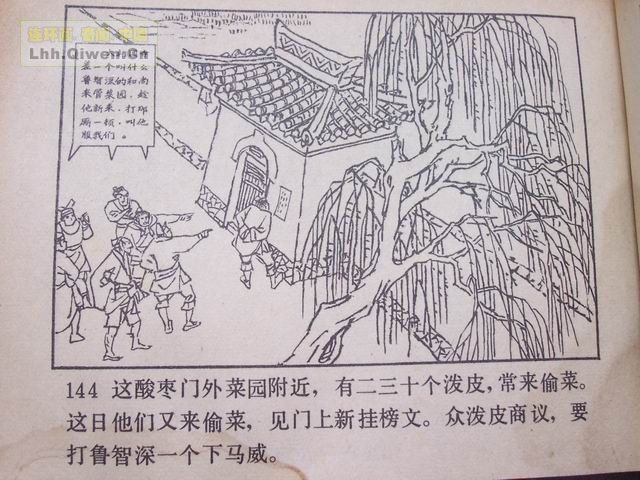 连环画·看图·中国
Lhh.Qiwen.Cn
差一个叫什么
鲁智深的和尚
来管菜园，趁
他新来，打那
厮一顿，叫他
服我们。
144 这酸枣门外菜园附近，有二三十个泼皮，常来偷菜。
这日他们又来偷菜，见门上新挂榜文。众泼皮商议，要
打鲁智深一个下马威。